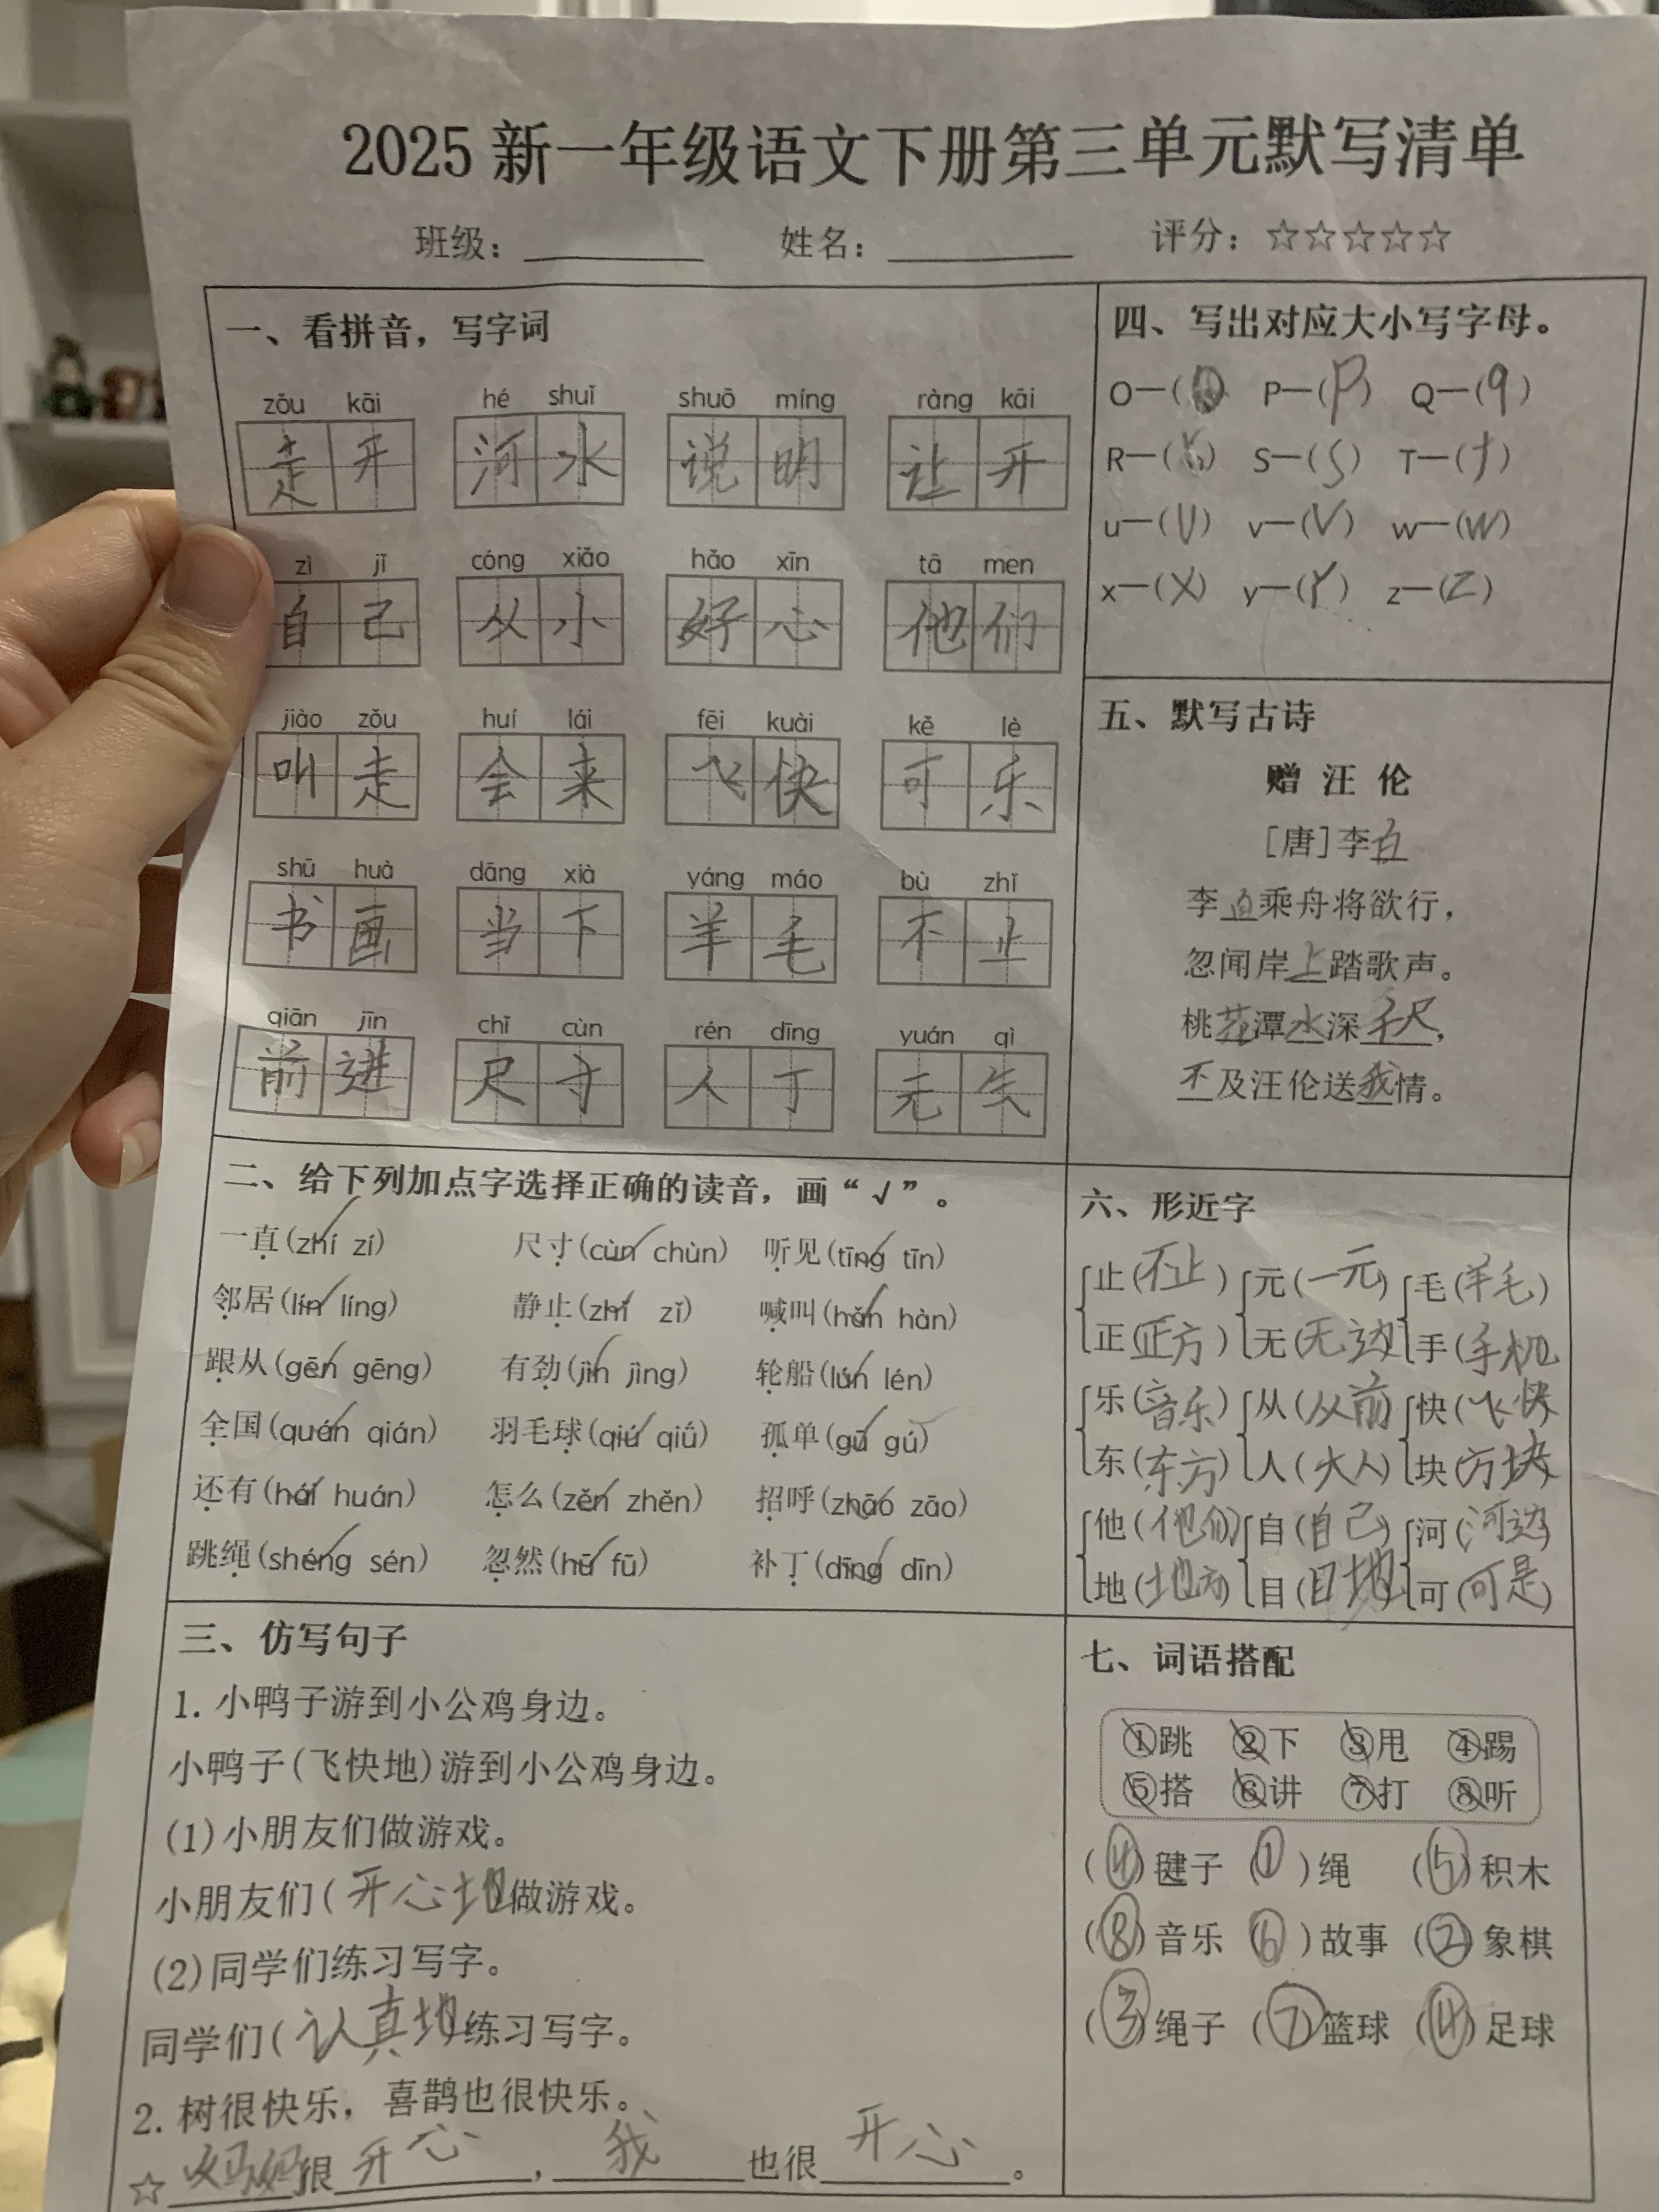 2025新一年级语文下册第三单元默写清单
班级： 姓名： 评分：☆☆☆☆☆
一、看拼音，写字词
zǒu kāi hé shuǐ shuō míng ràng kāi
走开 河水 说明 让开
zì jǐ cóng xiǎo hǎo xīn tā men
自己 从小 好心 他们
jiào zǒu huí lái fēi kuài kě lè
叫走 会来 飞快 可乐
shū huà dāng xià yáng máo bù zhǐ
书画 当下 羊毛 不止
qiān jīn chǐ cùn rén dīng yuán qì
前进 尺寸 人丁 元气
二、给下列加点字选择正确的读音，画“√”。
一直(zhí zí) 尺寸(cùn chùn) 听见(tīng tīn)
邻居(lín líng) 静止(zhǐ zǐ) 喊叫(hǎn hàn)
跟从(gēn gēng) 有劲(jìn jìng) 轮船(lún lén)
全国(quán qián) 羽毛球(qiú qiǔ) 孤单(gū gú)
还有(hái huán) 怎么(zěn zhěn) 招呼(zhāo zāo)
跳绳(shéng sén) 忽然(hū fū) 补丁(dīng dīn)
三、仿写句子
1. 小鸭子游到小公鸡身边。
小鸭子(飞快地)游到小公鸡身边。
(1)小朋友们做游戏。
小朋友们(开心地做游戏。
(2)同学们练习写字。
同学们(认真地练习写字。
2. 树很快乐，喜鹊也很快乐。
☆妈妈很开心，我也很开心。
四、写出对应大小写字母。
O—( ) P—(p) Q—(q)
R—( ) S—(s) T—(t)
u—(U) v—(V) w—(W)
x—(X) y—(Y) z—(Z)
五、默写古诗
赠汪伦
[唐]李白
李白乘舟将欲行，
忽闻岸上踏歌声。
桃花潭水深千尺，
不及汪伦送我情。
六、形近字
止(不止) 元(一元) 毛(羊毛)
正(正方) 无(无边) 手(手机)
乐(音乐) 从(从前) 快(飞快)
东(东方) 人(大人) 块(方块)
他(他们) 自(自己) 河(河边)
地(地方) 目(目地) 可(可是)
七、词语搭配
①跳 ②下 ③甩 ④踢
⑤搭 ⑥讲 ⑦打 ⑧听
(④)毽子 (①)绳 (⑤)积木
(⑧)音乐 (⑥)故事 (②)象棋
(③)绳子 (⑦)篮球 (④)足球